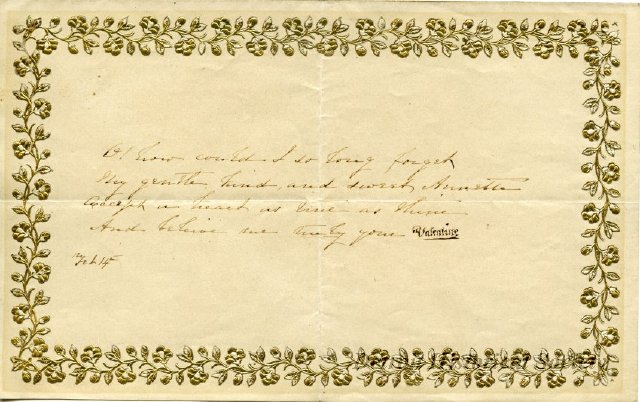 O! how could I so long forget
My gentle kind and sweet Annette
Accept a heart as true as thine
And believe me truly your Valentine
Feb 14